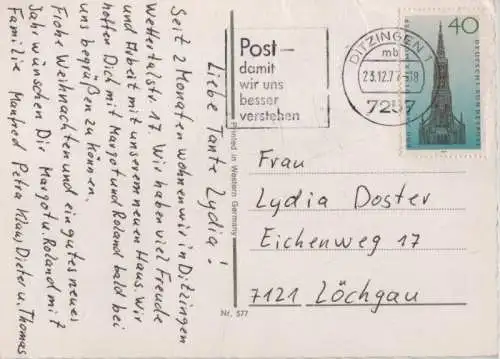 Liebe Tante Lydia!
Seit 2 Monaten wohnen wir in Ditzingen
Wettertelstr. 17. Wir haben viel Freude
und Arbeit mit unserem neuen Haus. Wir
hoffen Dich mit Margot und Roland bald bei
uns begrüßen zu können.
Frohe Weihnachten und ein gutes neues
Jahr wünschen Dir Margot u. Roland mit
Familie Manfred Petra Klaus Dieter u. Thomas
Printed in Western Germany
Post –
damit
wir uns
besser
verstehen
DITZINGEN 1
mb
23.12.77-18
7257
40
DEUTSCHE BUNDESPOST
Frau
Lydia Doster
Eichenweg 17
7121 Löchgau
Nr. 577